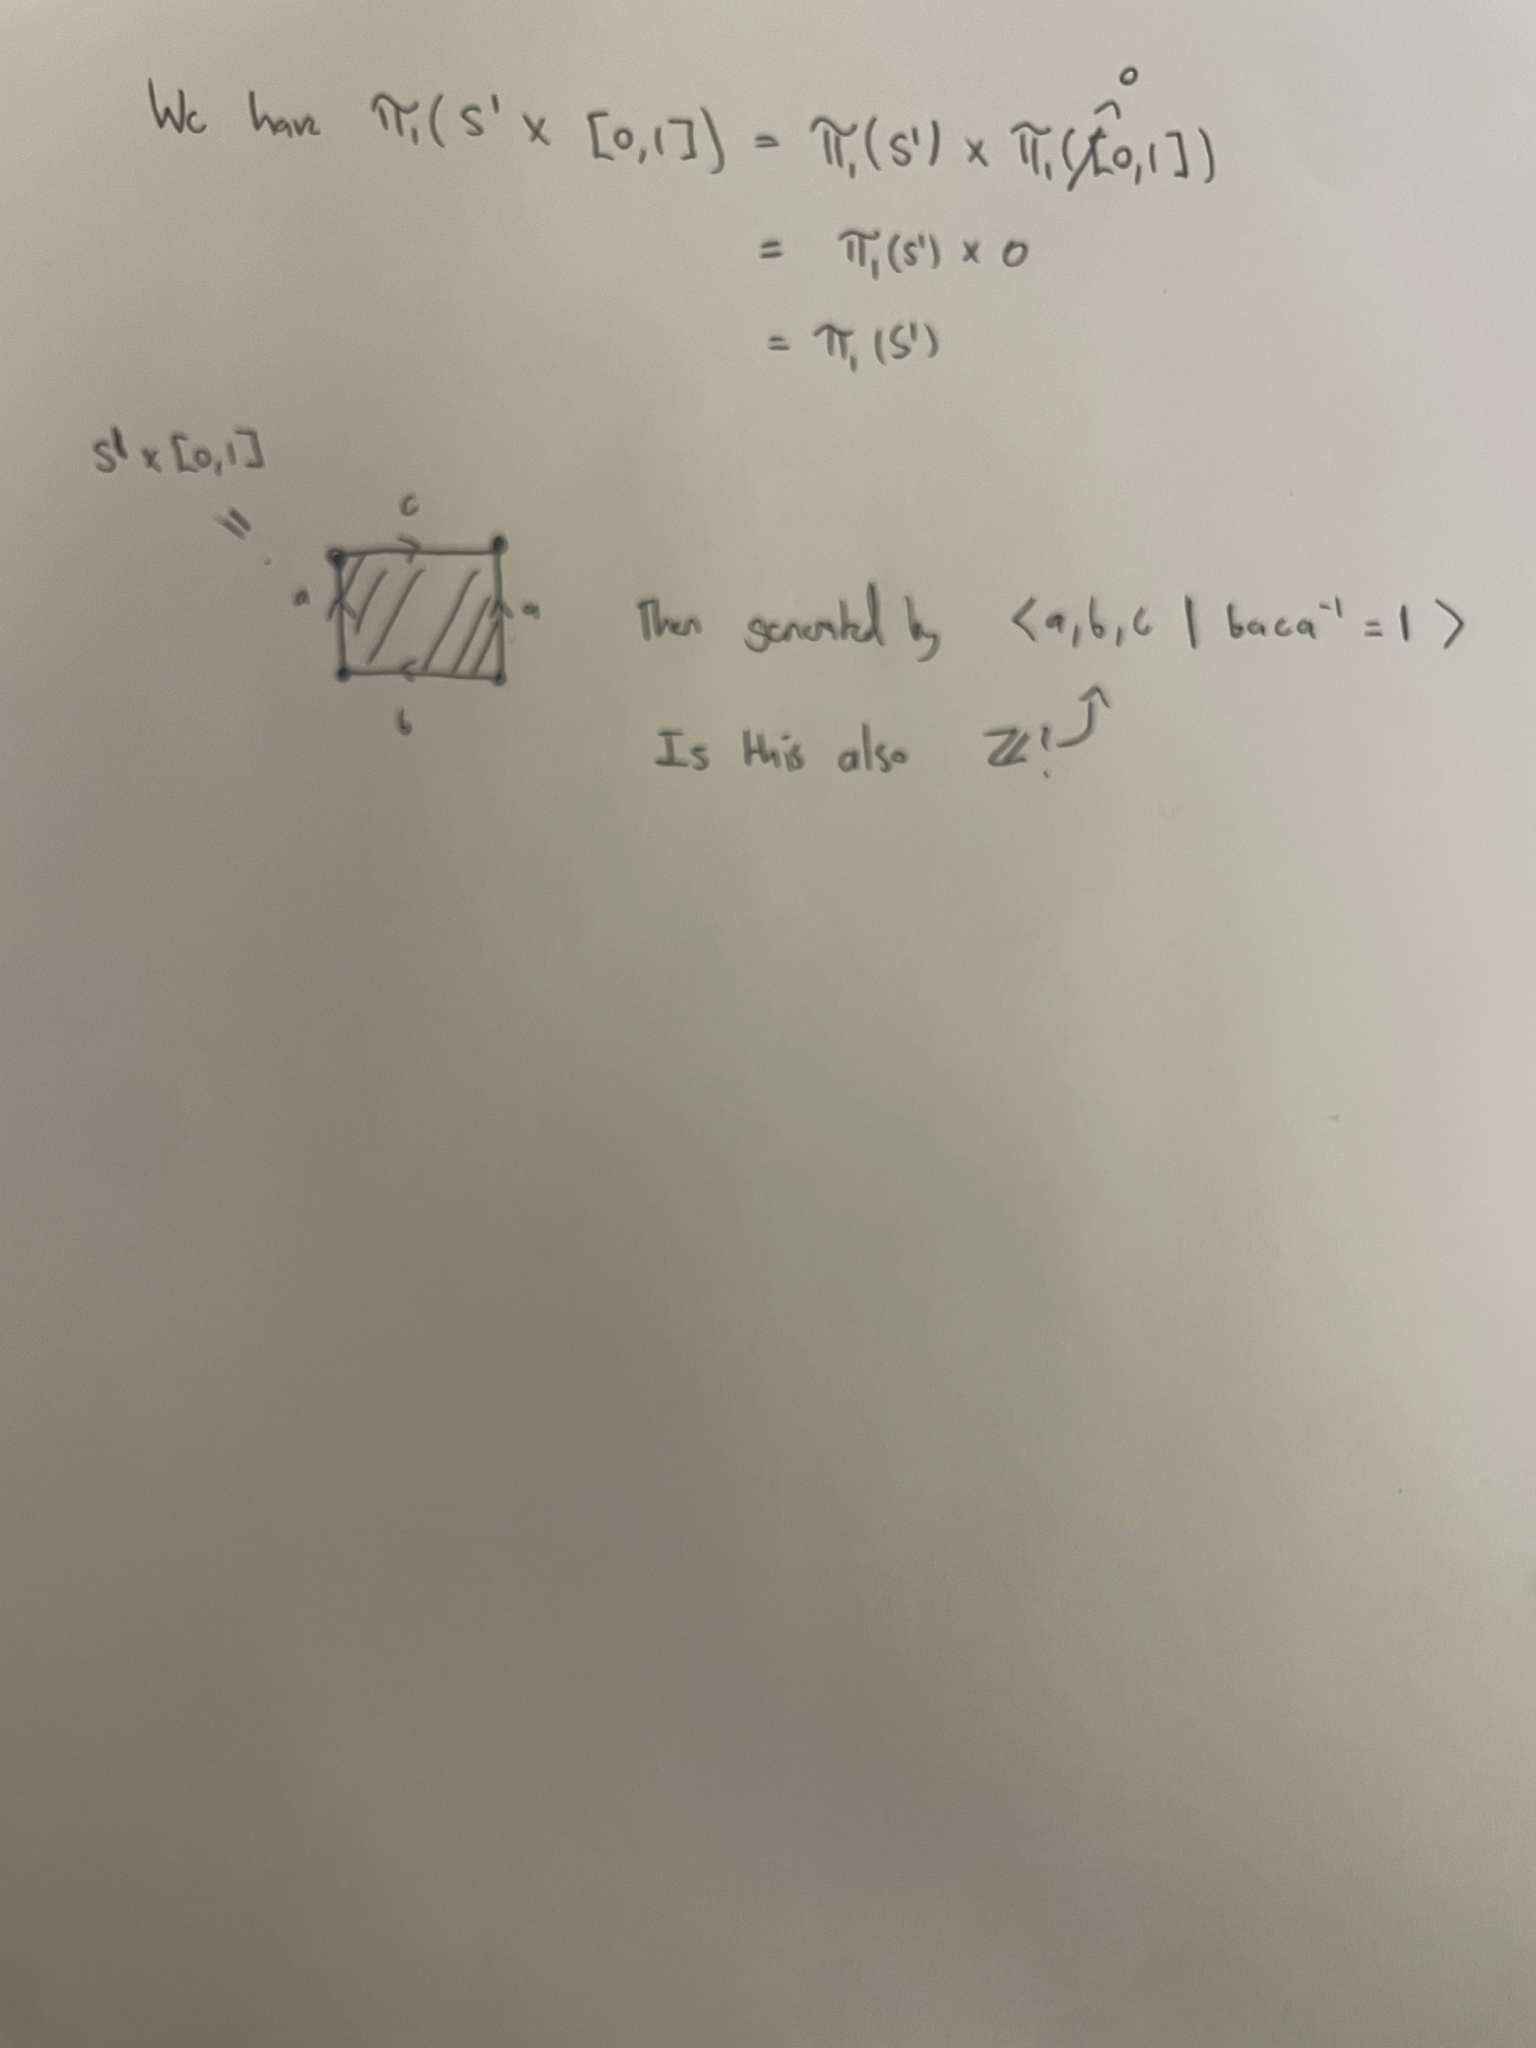 We have π₁(S¹ × [0,1]) = π₁(S¹) × π₁([0,1])
0
= π₁(S¹) × 0
= π₁(S¹)
S¹ × [0,1]
=
c
a
a
b
Then generated by <a,b,c | baca⁻¹ = 1>
Is this also ℤ?